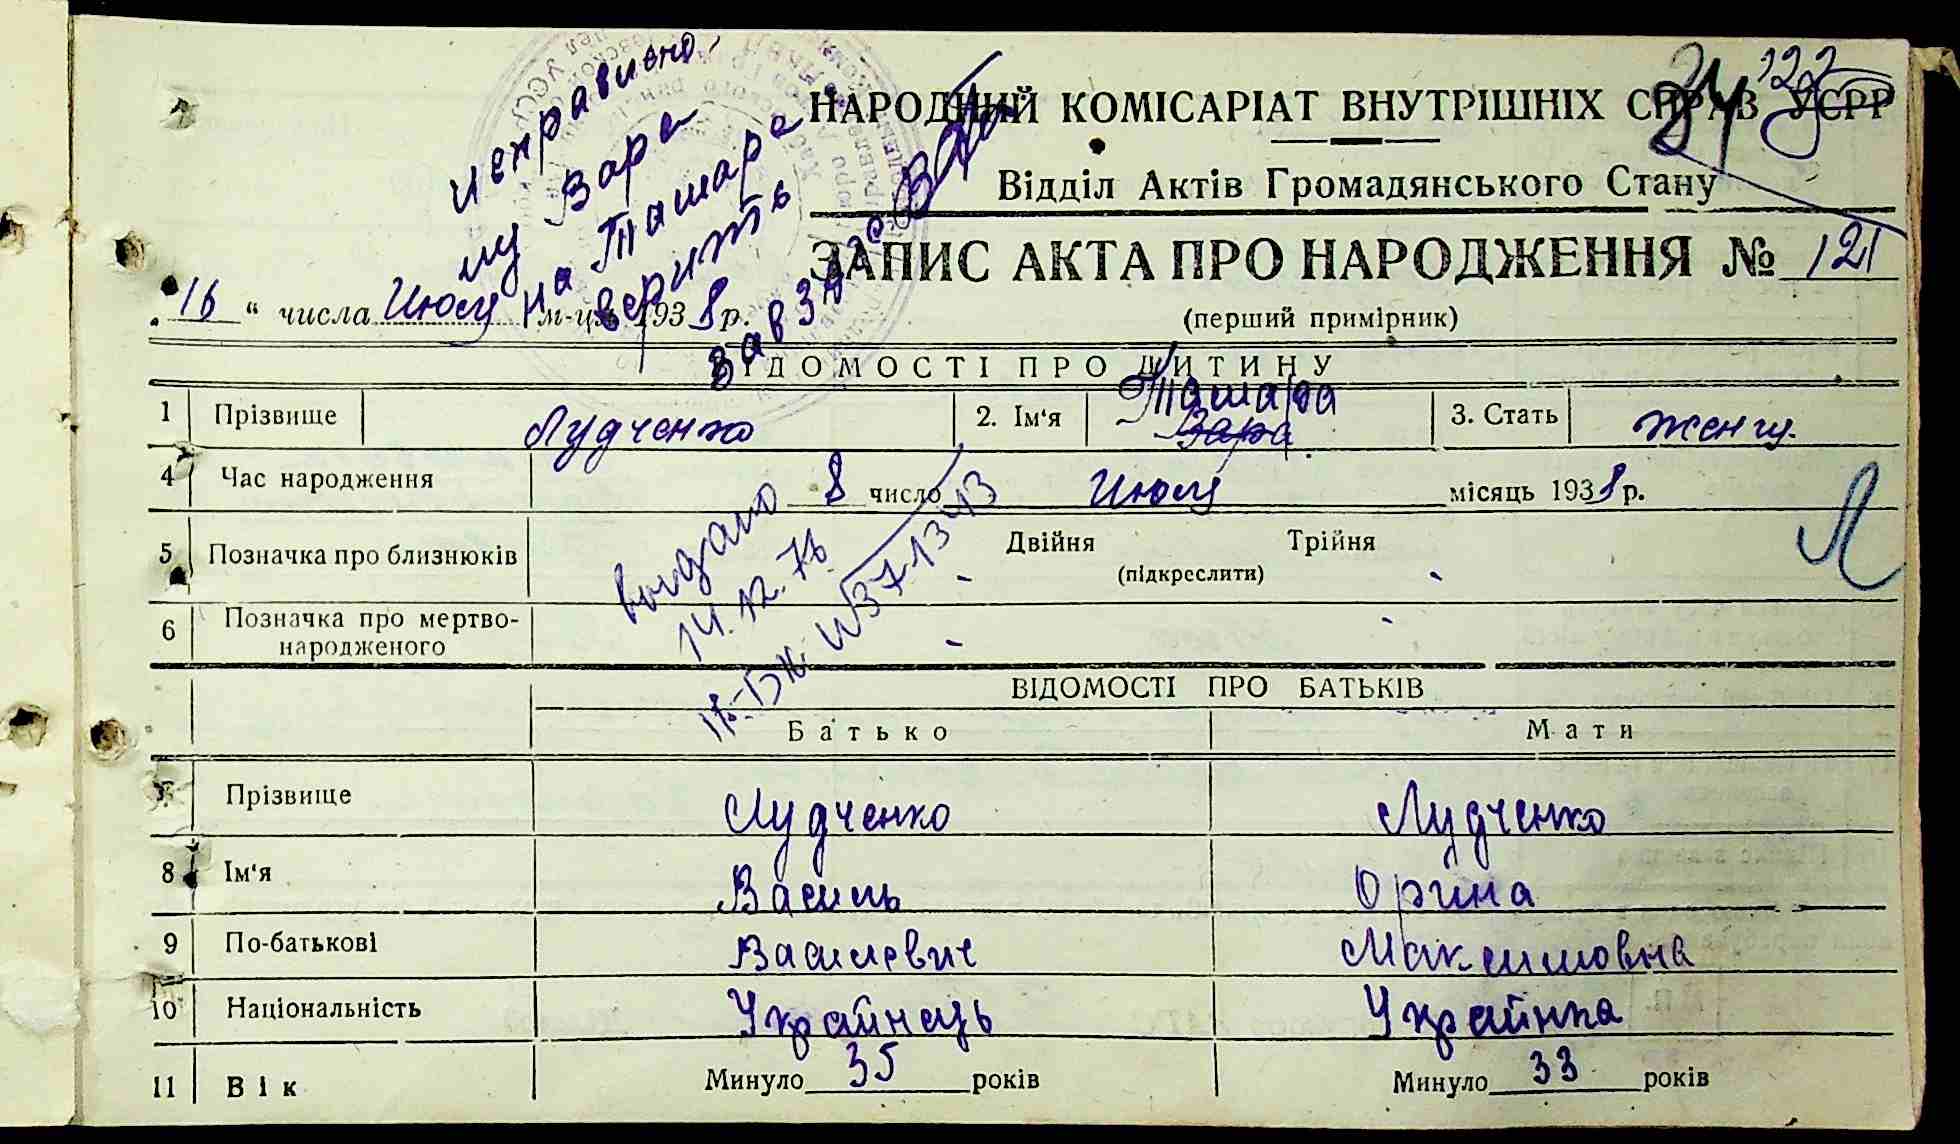 исправлено
му Вара
на Тамара
верить
НАРОДНИЙ КОМІСАРІАТ ВНУТРІШНІХ СПРАВ УСРР
Відділ Актів Громадянського Стану
ЗАПИС АКТА ПРО НАРОДЖЕННЯ № 121
16 “ числа Июля м-ця 1938 р.
(перший примірник)
ВІДОМОСТІ ПРО ДИТИНУ
1 Прізвище Лудченко 2. Ім‘я Тамара Вара 3. Стать женщ.
4 Час народження 8 число Июля місяць 1938 р.
5 Позначка про близнюків Двійня Трійня
(підкреслити)
6 Позначка про мертво-
народженого
выдано
14.12.76
ВІДОМОСТІ ПРО БАТЬКІВ
Батько Мати
7 Прізвище Лудченко Лудченко
8 Ім‘я Василь Орина
9 По-батькові Василевич Максимовна
10 Національність Українець Українка
11 Вік Минуло 35 років Минуло 33 років